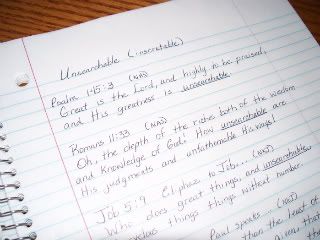 Unsearchable (inscrutable)
Psalm 145:3 (NAS)
Great is the Lord, and highly to be praised,
and His greatness is unsearchable.
Romans 11:33 (NAS)
Oh, the depth of the riches both of the wisdom
and Knowledge of God! How unsearchable are
His judgments and unfathomable His ways!
Job 5:9 Eliphaz to Job...
Who does great things and unsearchable,
things without number.
Paul speaks...
than the least of
given that